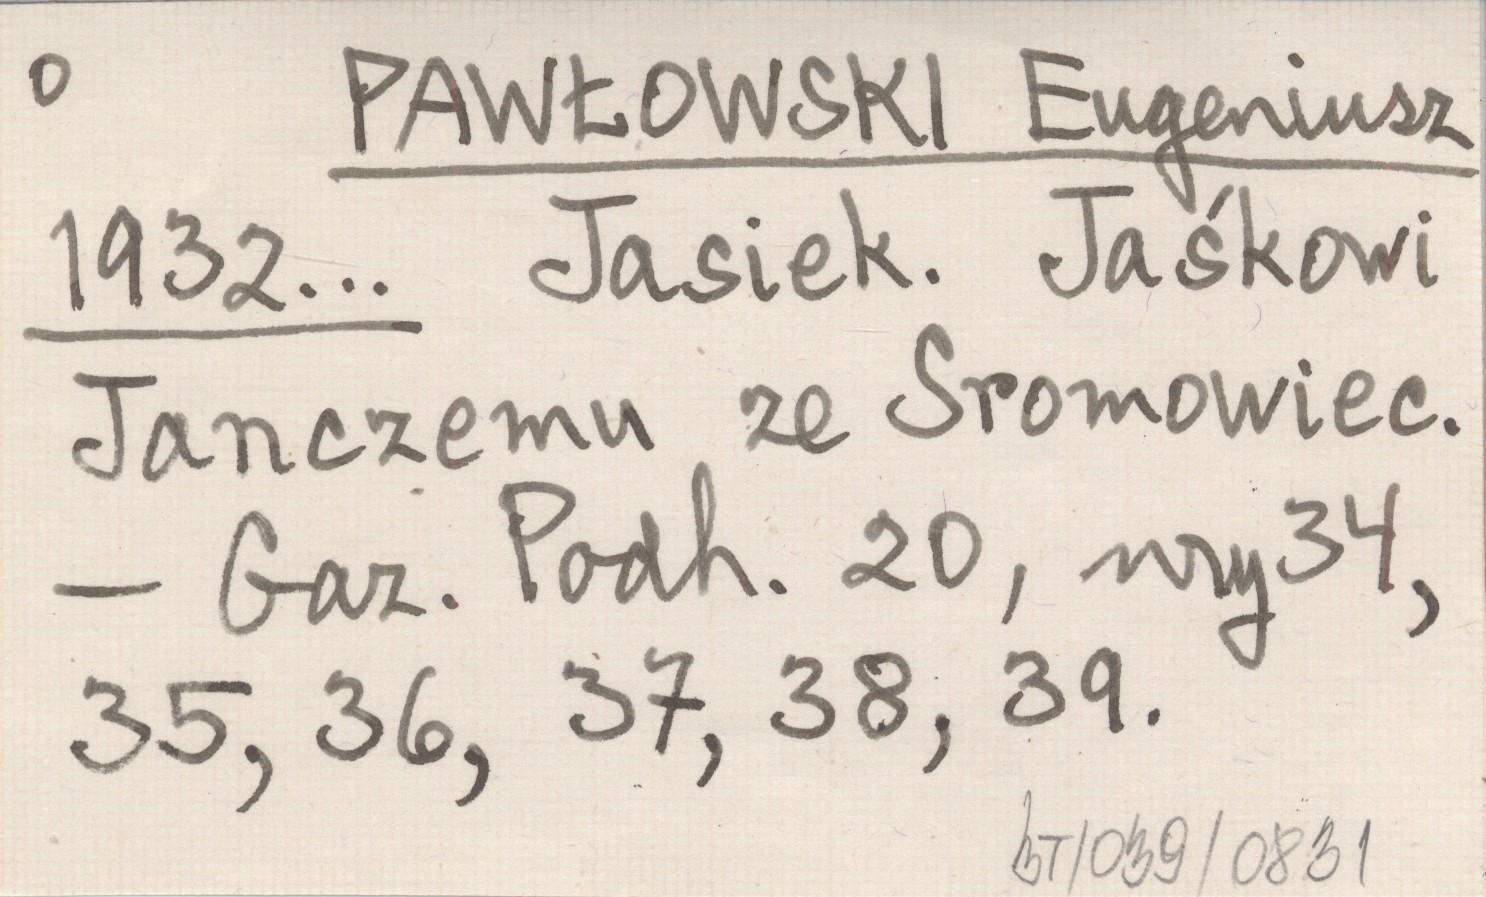 o PAWŁOWSKI Eugeniusz
1932... Jasiek. Jaśkowi
Janczemu ze Sromowiec.
— Gaz. Podh. 20, nry 34,
35, 36, 37, 38, 39.
BT/039/0831